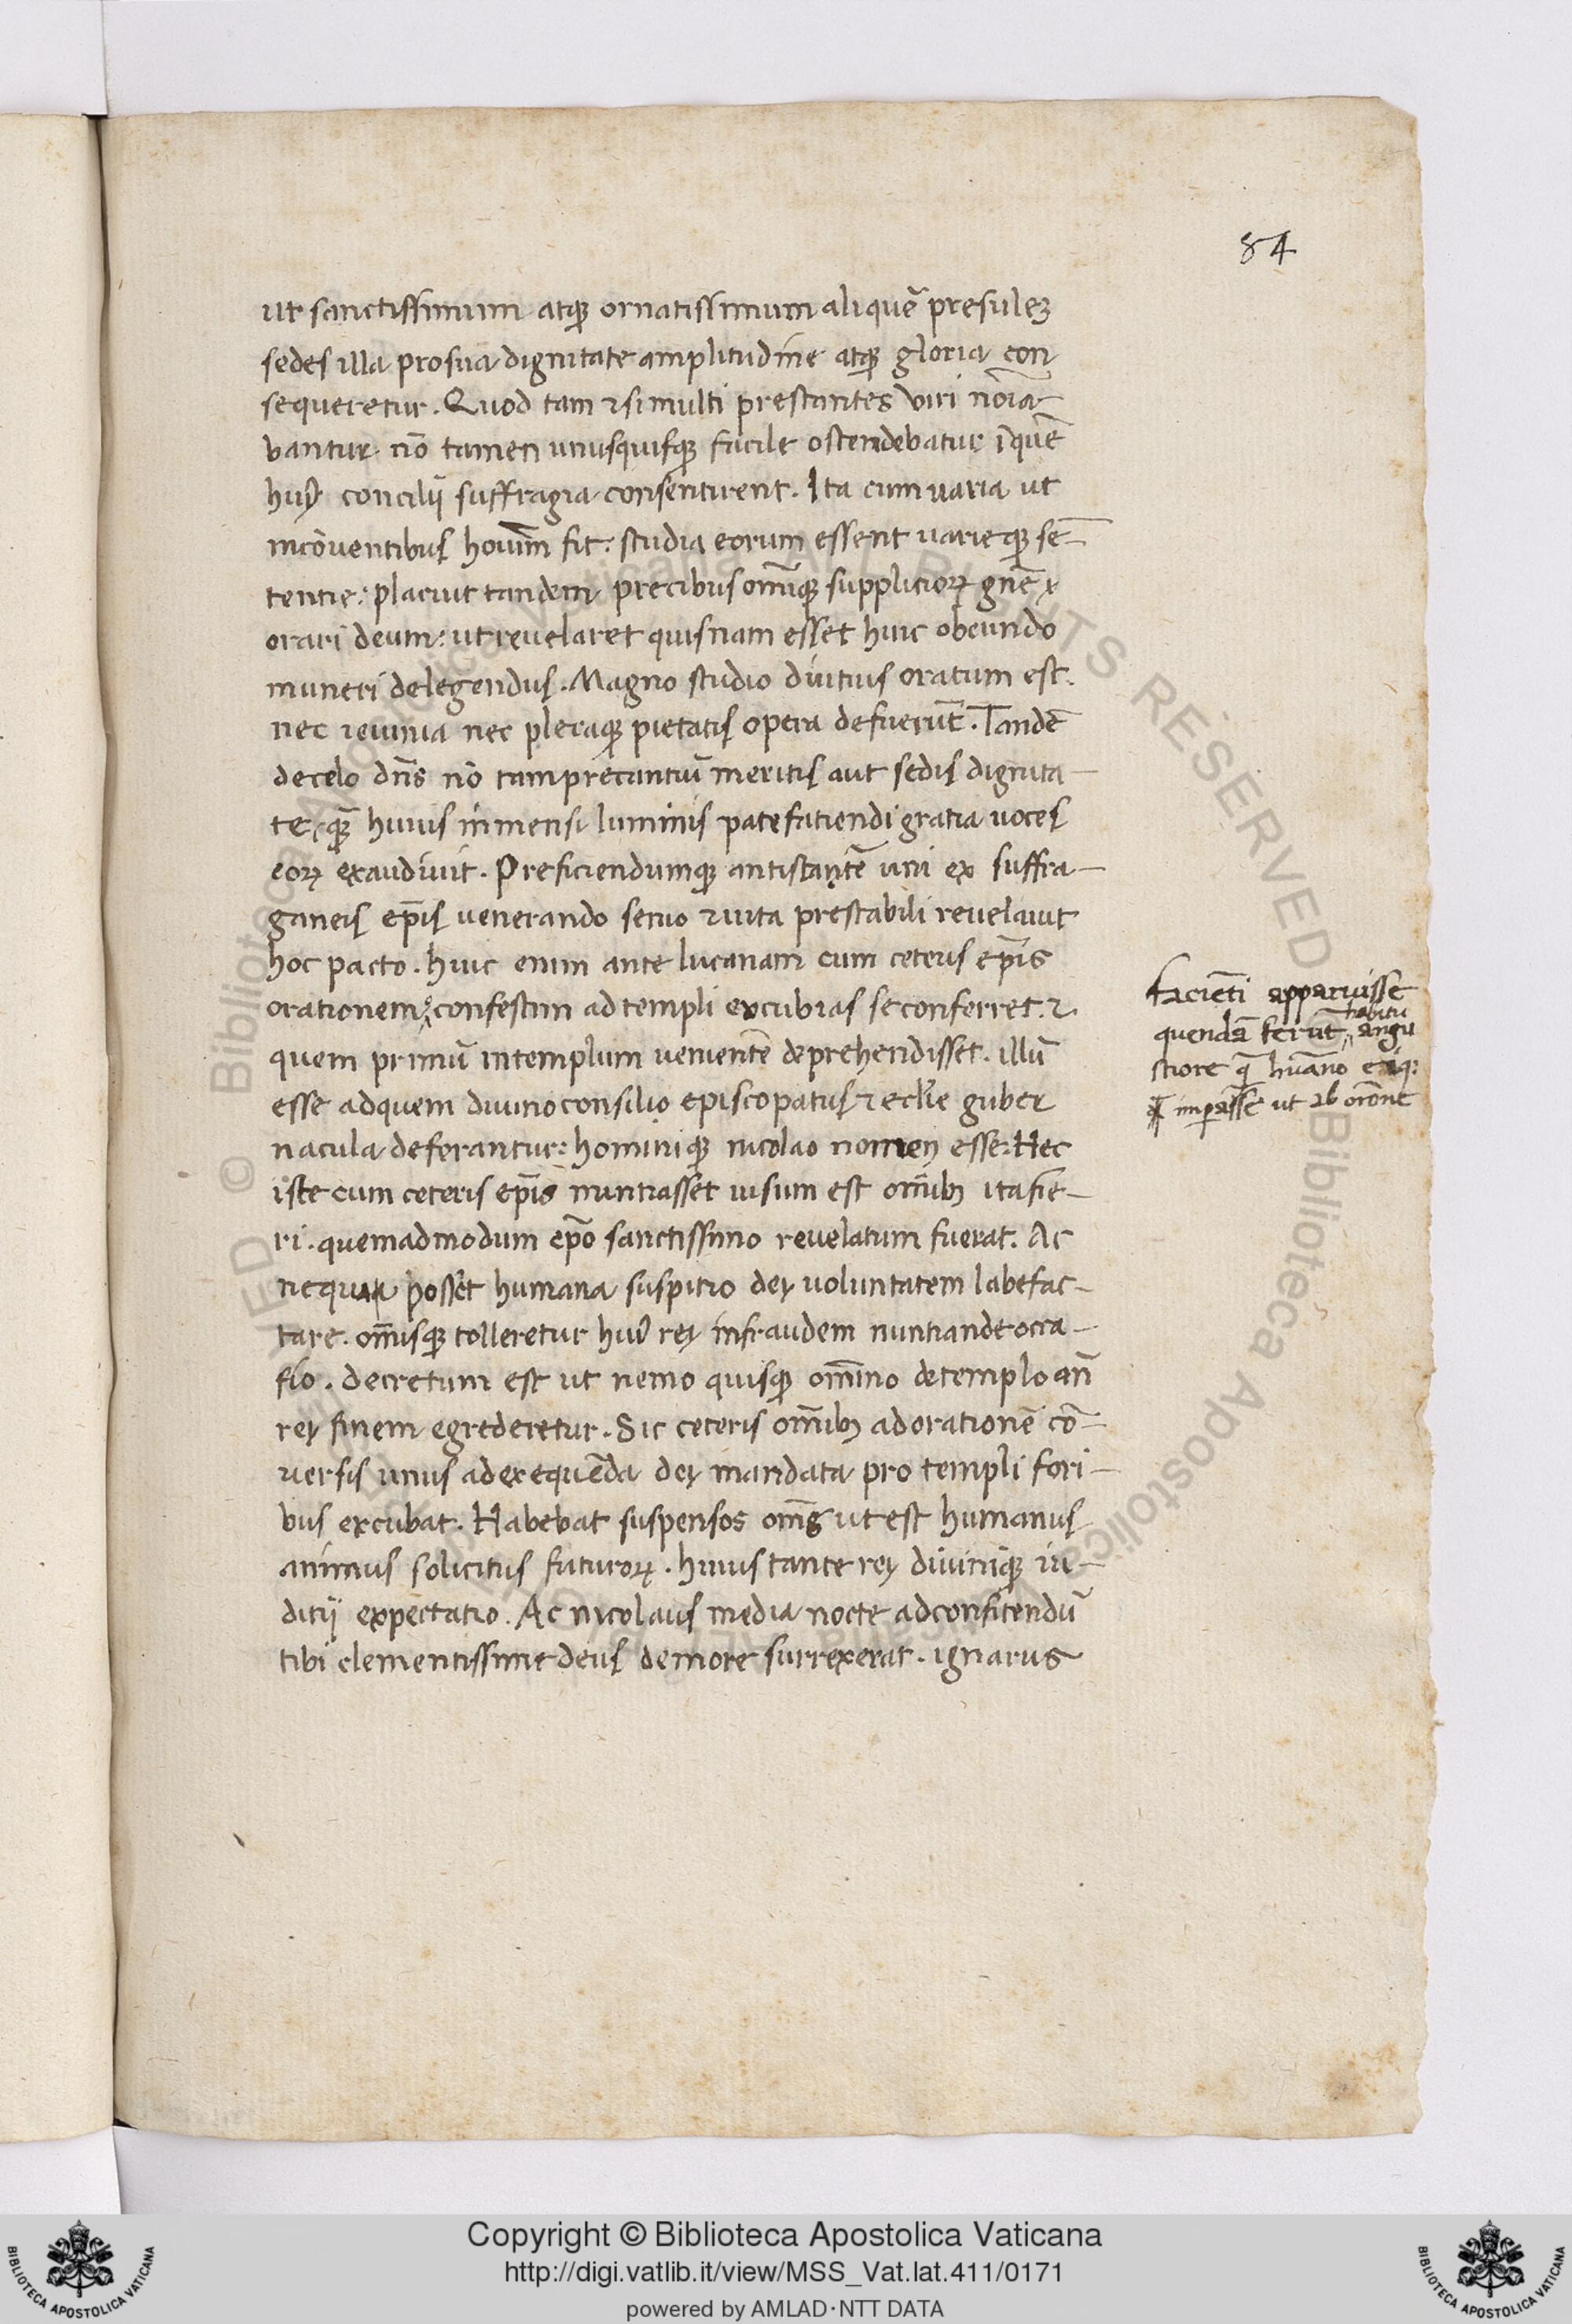 84
ut sanctissimum atqꝫ ornatissimum aliquē presuleꝫ
sedes illa pro sua dignitate amplitudine atqꝫ gloria con
sequeretur. Quod tam ⁊si multi prestantes viri noīa
bantur nō tamen unusquisqꝫ facile ostendebatur īquē
huiꝰ concilij suffragia consentirent. Ita cum varia ut
incōventibus hoīum fit: studia eorum essent varieqꝫ sē-
tentie: placuit tandem precibus omīqꝫ suppliciorꝝ gnē̄ ex
orari deum: ut revelaret quisnam esset huic obeundo
muneri delegendus. Magno studio diutius oratum est.
nec ieiunia nec pleraqꝫ pietatis opera defuerūt. Tandē
de celo dn̄s nō tam precantiū meritis aut sedis dignita-
te, qꝫ̄ huius inmensi luminis patefatiendi gratia voces
eorꝝ exaudivit. Preficiendumqꝫ antistantē uni ex suffra-
ganeis ep̄is venerando senio ⁊ vita prestabili revelavit
hoc pacto. huic enim ante lucanam cum ceteris ep̄is
orationem: confestim ad templi excubias se conferret. ⁊
quem primū in templum venientē deprehendisset. illū
esse ad quem divino consilio episcopatus ⁊ ecl̄ie guber
nacula deferantur: hominiqꝫ nicolao nomen esse: Hec
iste cum ceteris ep̄is nuntiasset visum est om̄ibꝫ ita fie-
ri. quemadmodum ep̄o sanctissimo revelatum fuerat. Ac
ne qua posset humana suspitio dei voluntatem labefac-
tare. om̄isqꝫ tolleretur huiꝰ rei in fraudem nuntiande occa-
sio. decretum est ut nemo quisqꝫ om̄ino de templo an̄
rei finem egrederetur. Sic ceteris om̄ibꝫ ad orationē cō-
versis unus ad exequēda dei mandata pro templi fori-
bus excubat. Habebat suspensos om̄s ut est humanus
animus solicitus futurorꝝ. huius tante rei diviniqꝫ iu-
ditij expectatio. Ac nicolaus media nocte ad confitendū
tibi clementissime deus de more surrexerat. ignarus
facieti apparuisse
quendā ferūt habitu angu
stiore qꝫ̄ huāno eiqꝫ
imperasse ut ab orōne
Copyright © Biblioteca Apostolica Vaticana
http://digi.vatlib.it/view/MSS_Vat.lat.411/0171
powered by AMLAD·NTT DATA